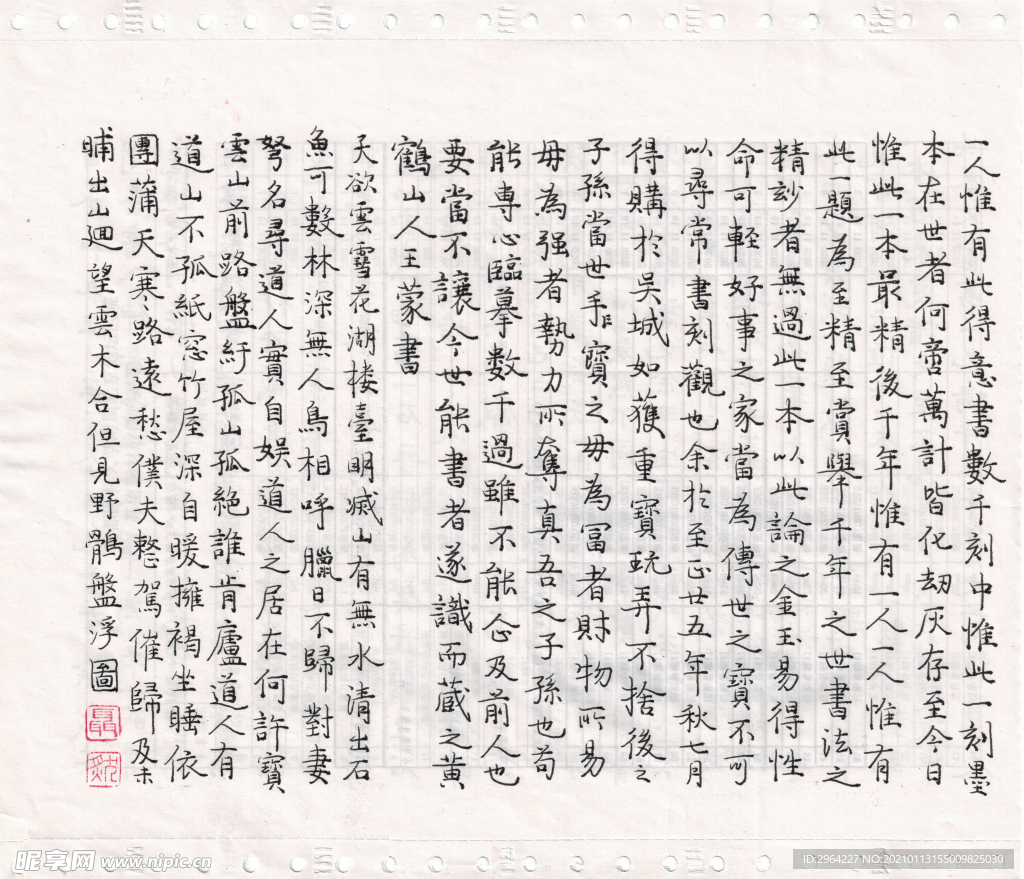 一人惟有此得意書數千刻中惟此一刻墨
本在世者何啻萬計皆化劫灰存至今日
惟此一本最精後千年惟有一人一人惟有
此一題為至精至賞舉千年之世書法之
精玅者無過此一本以此論之金玉易得性
命可輕好事之家當為傳世之寶不可
以尋常書刻觀也余於至正廿五年秋七月
得購於吳城如獲重寶玩弄不捨後之
子孫當世手寶之毋為冨者財物所易
毋為强者勢力所奪真吾之子孫也苟
能專心臨摹数千過雖不能㕕及前人也
要當不讓今世能書者遂識而蔵之黄
鶴山人王蒙書
天欲雲雪花湖楼臺明滅山有無水清出石
魚可數林深無人鳥相呼臘日不歸對妻
孥名尋道人實自娱道人之居在何許寶
雲山前路盤紆孤山孤絕誰肯廬道人有
道山不孤紙窓竹屋深自暖擁褐坐睡依
團蒲天寒路遠愁僕夫整駕催歸及未
晡出山廻望雲木合但見野鶻盤浮圖
昵享网 www.nipic.cn
ID:2964227 NO:20210113155009825030